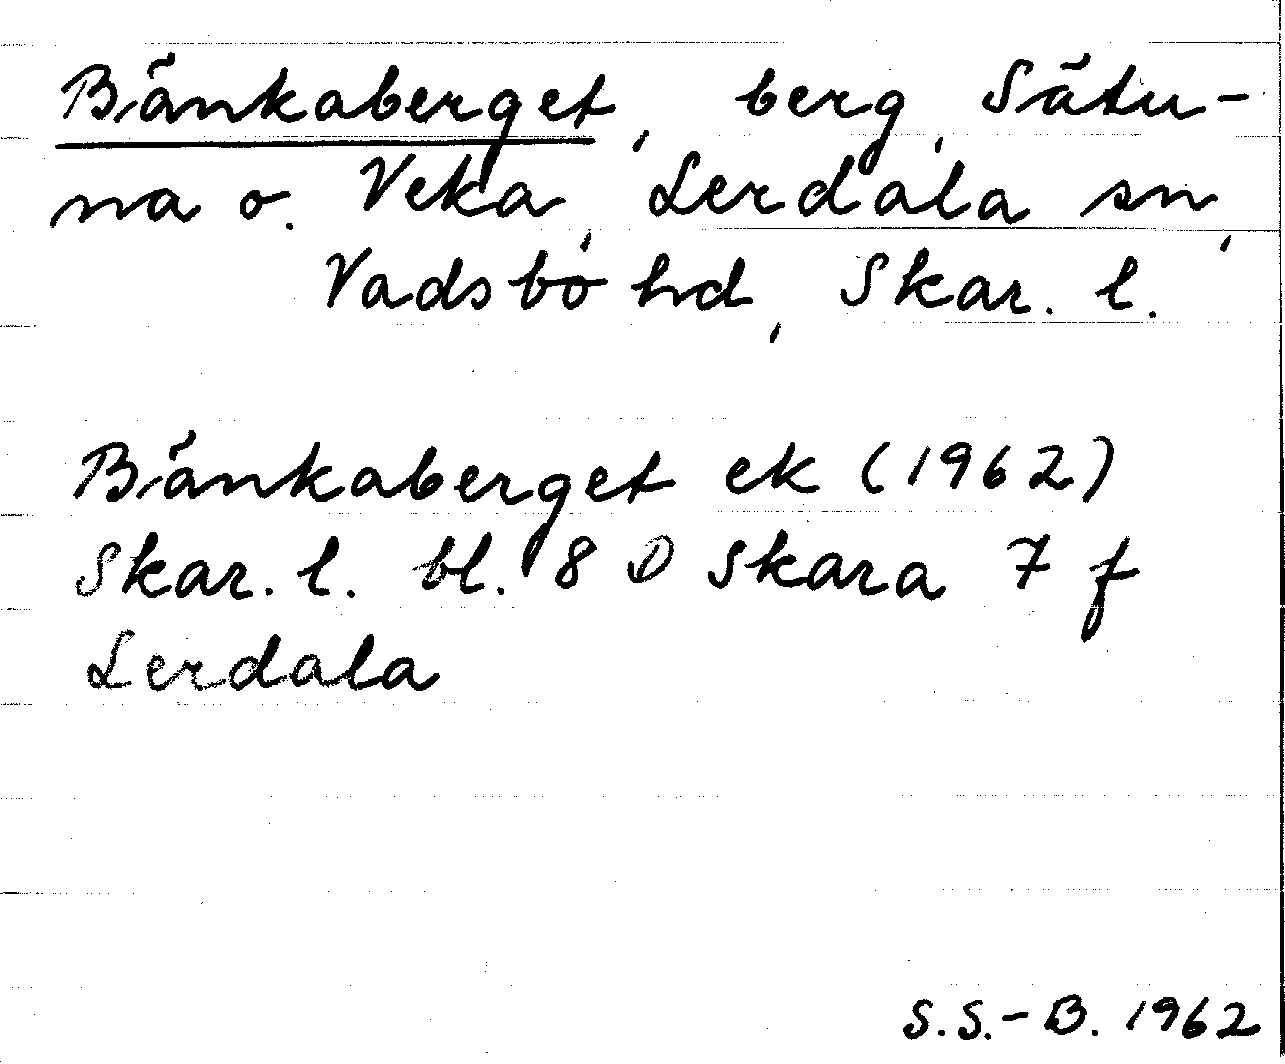 Bänkaberget, berg, Sätu-
na o. Veka, Lerdala sn,
Vadsbo hd, Skar. l.
Bänkaberget ek (1962)
Skar. l. bl. 8 D Skara 7 f
Lerdala
S.S.-B. 1962